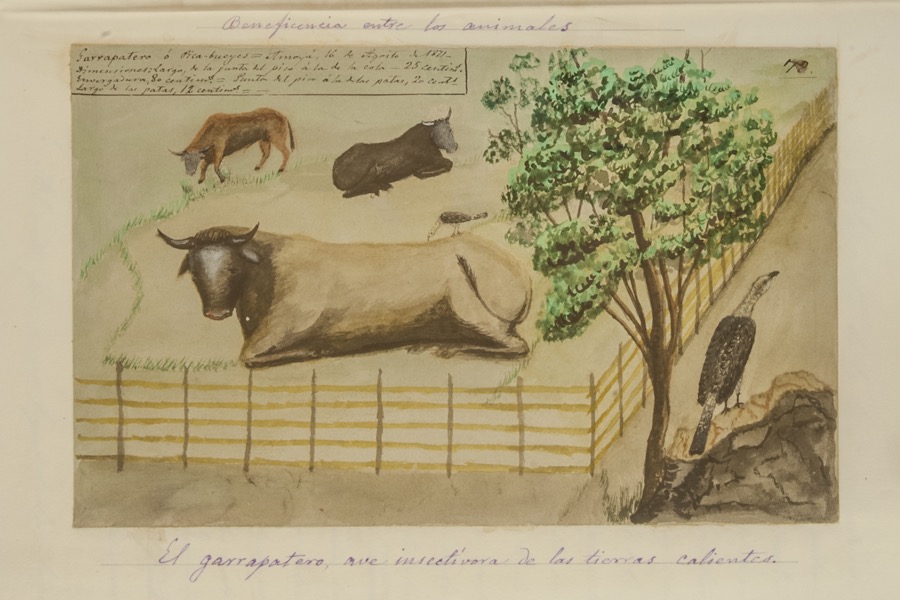 Beneficencia entre los animales
Garrapatero ó Pica-bueyes = Anapá, 16 de Agosto de 1871_
Dimensiones: Largo, de la punta del pico á la de la cola — 25 centims.
Envergadura, 30 centims. = Punta del pico á la de las patas, 20 cents.
Largo de las patas, 12 centims. = —
El garrapatero, ave insectívora de las tierras calientes.